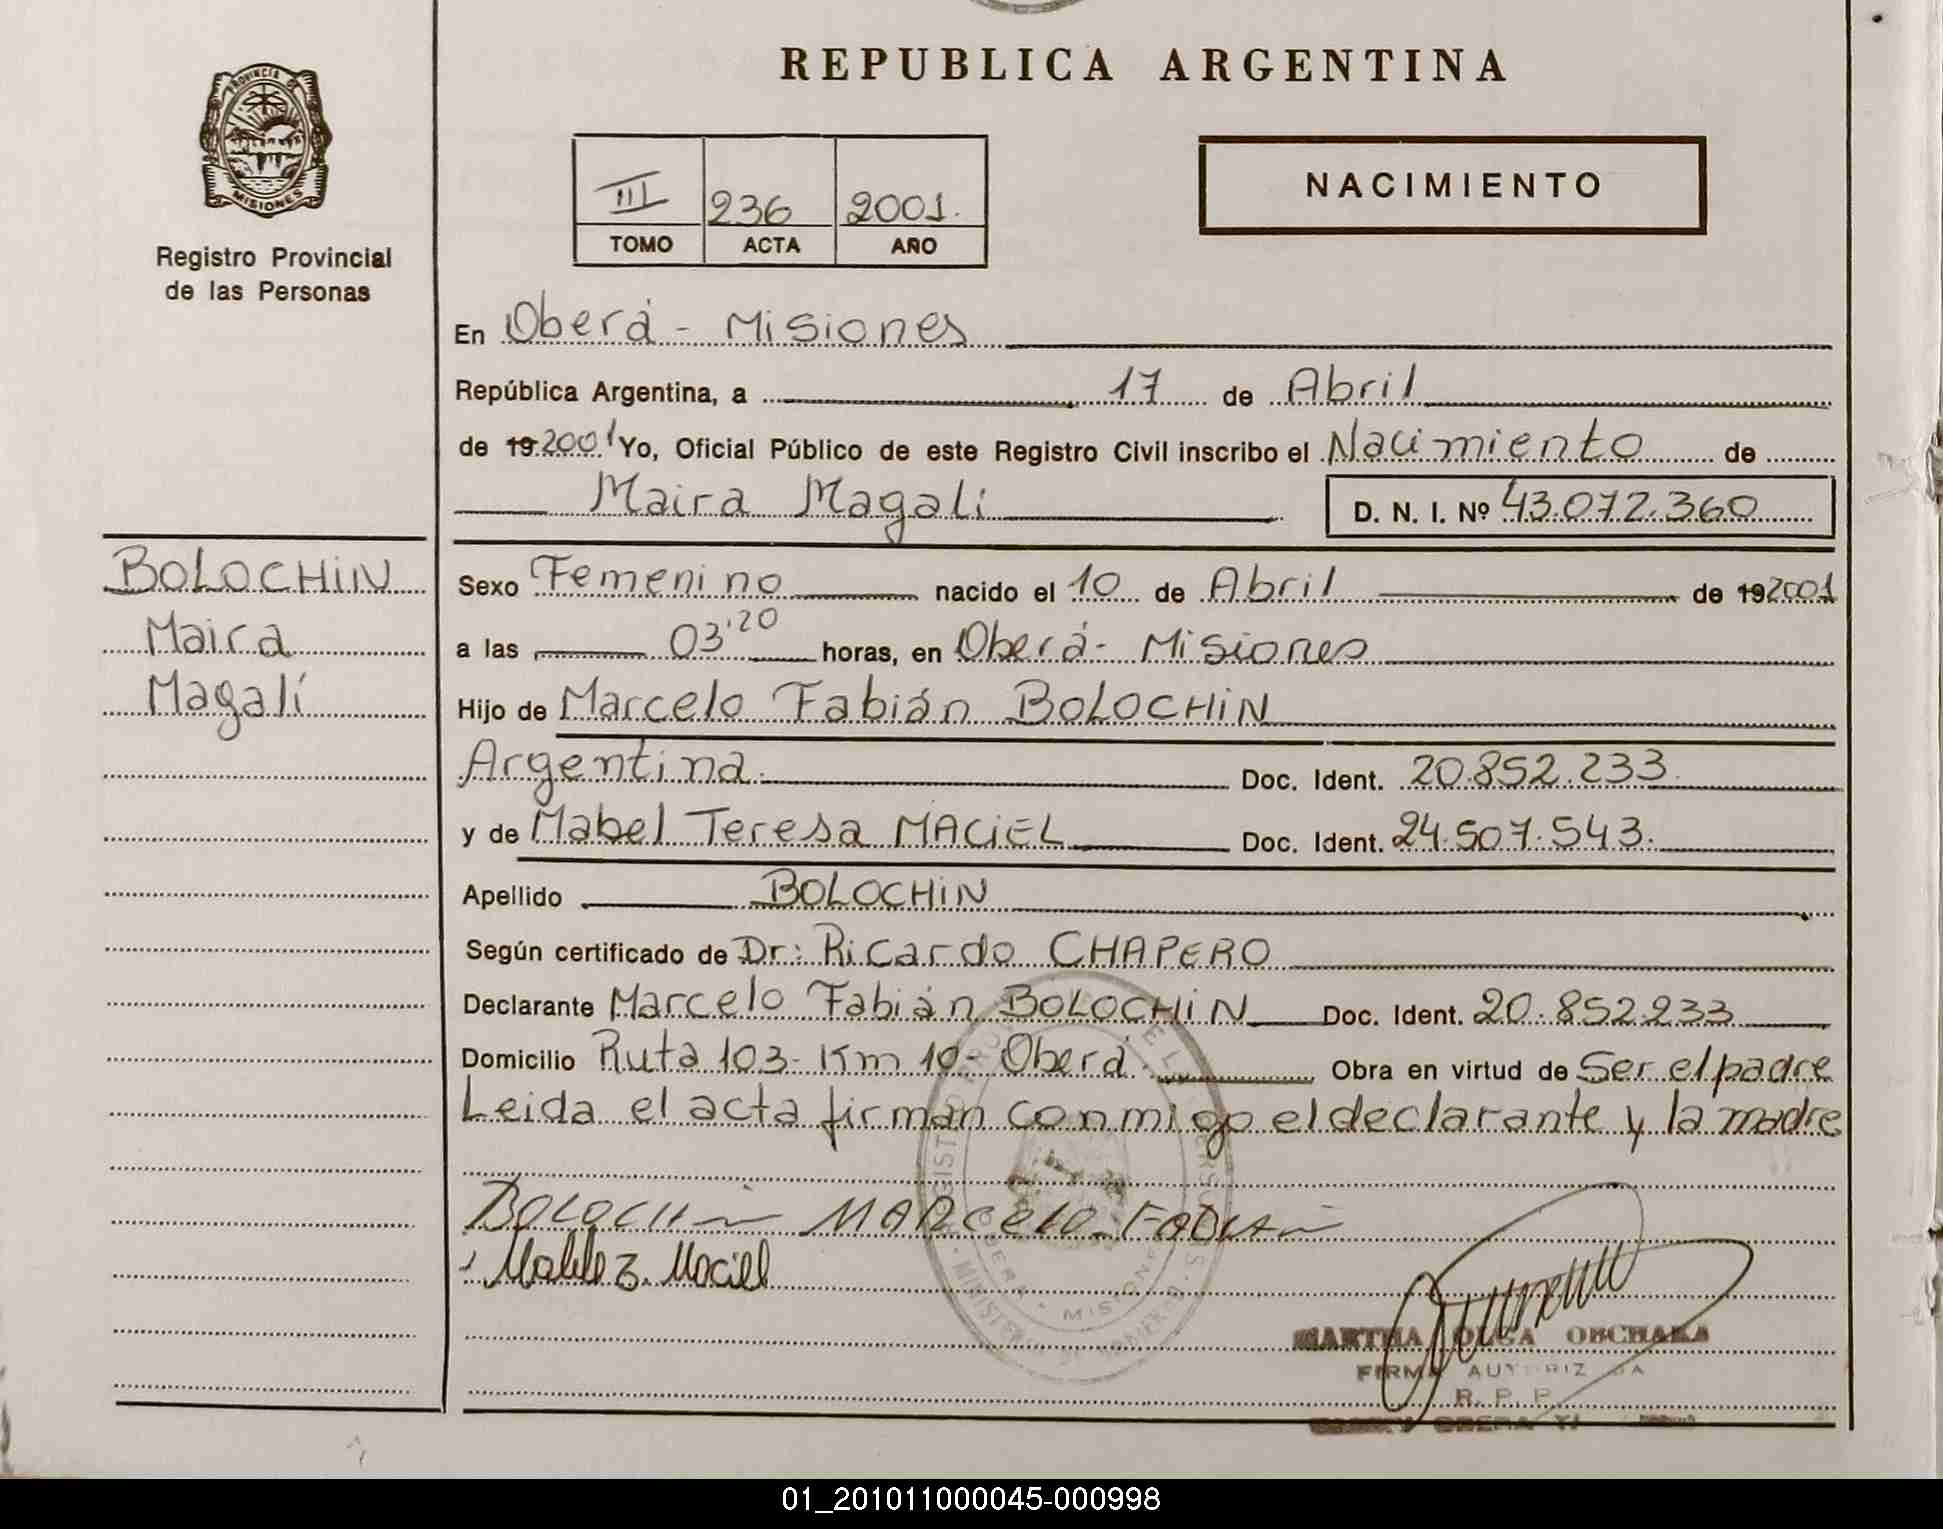 REPUBLICA ARGENTINA
PROVINCIA DE
MISIONES
Registro Provincial
de las Personas
III 236 2001.
TOMO ACTA AÑO
NACIMIENTO
En Oberá - Misiones
República Argentina, a 17 de Abril
de 19 2001 Yo, Oficial Público de este Registro Civil inscribo el Nacimiento de
Maira Magalí D. N. I. Nº 43.072.360
BOLOCHiN
Maira
Magalí
Sexo Femenino nacido el 10 de Abril de 19 2001
a las 03'20 horas, en Oberá - Misiones
Hijo de Marcelo Fabián BOLOCHiN
Argentina. Doc. Ident. 20.852.233.
y de Mabel Teresa MACiEL Doc. Ident. 24.507.543.
Apellido BOLOCHiN
Según certificado de Dr: Ricardo CHAPERO
Declarante Marcelo Fabián BOLOCHiN Doc. Ident. 20.852.233
Domicilio Ruta 103- Km 10- Oberá. Obra en virtud de Ser el padre
Leida el acta firman conmigo el declarante y la madre
BOLOCHiN MARCELO FABIAN
Maciel
MARTHA OLGA OBCHAKA
FIRMA AUTORIZADA
R. P. P.
OBERA
MISIONES
01_201011000045-000998